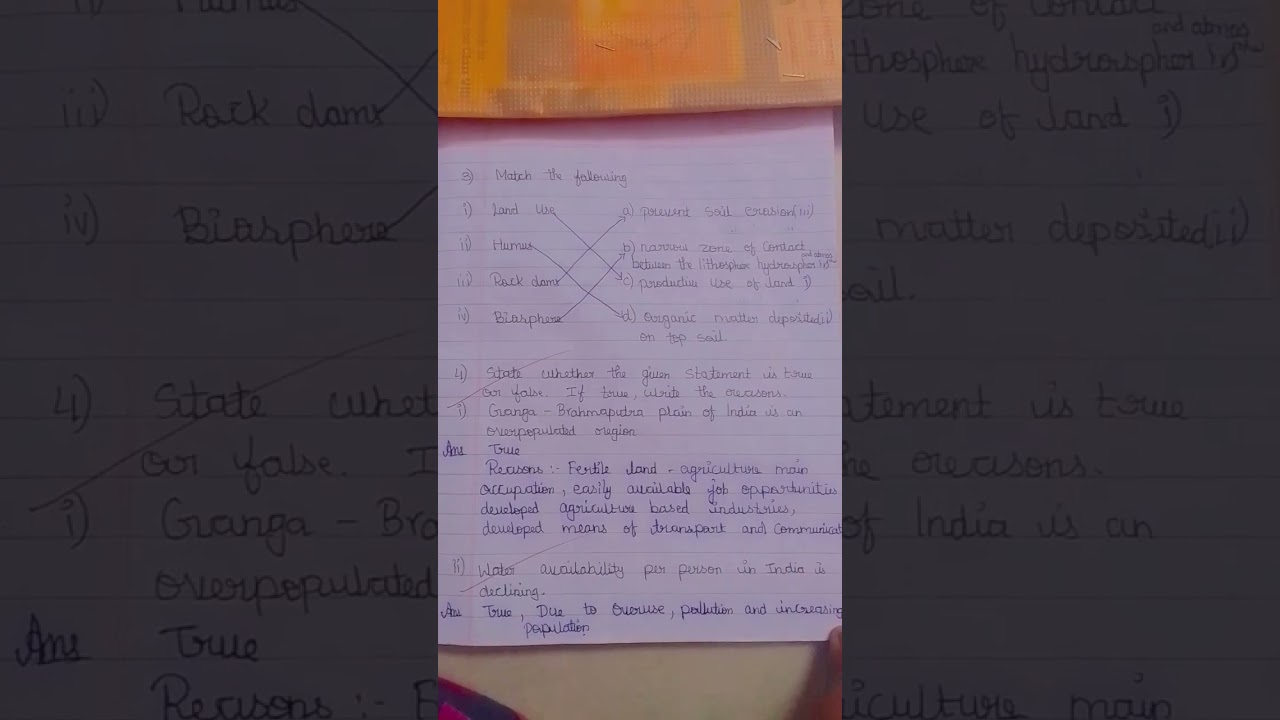 3) Match the following
i) Land Use
a) prevent soil erosion(iii)
ii) Humus
b) narrow zone of Contact
and atmos
between the lithospher hydrorspher
iii) Rock dams
c) productive use of land i)
iv) Biasphere
d) organic matter deposited(ii)
on top soil.
4) State whether the given statement is true
or false. If true, write the reasons.
i) Ganga - Brahmaputra plain of India is an
overpopulated region
Ans True
Reasons :- Fertile land - agriculture main
occupation, easily available job opportunities
developed agriculture based industries,
developed means of transport and communicat
ii) Water availability per person in India is
declining.
Ans True, Due to overuse, pollution and increasing
population.